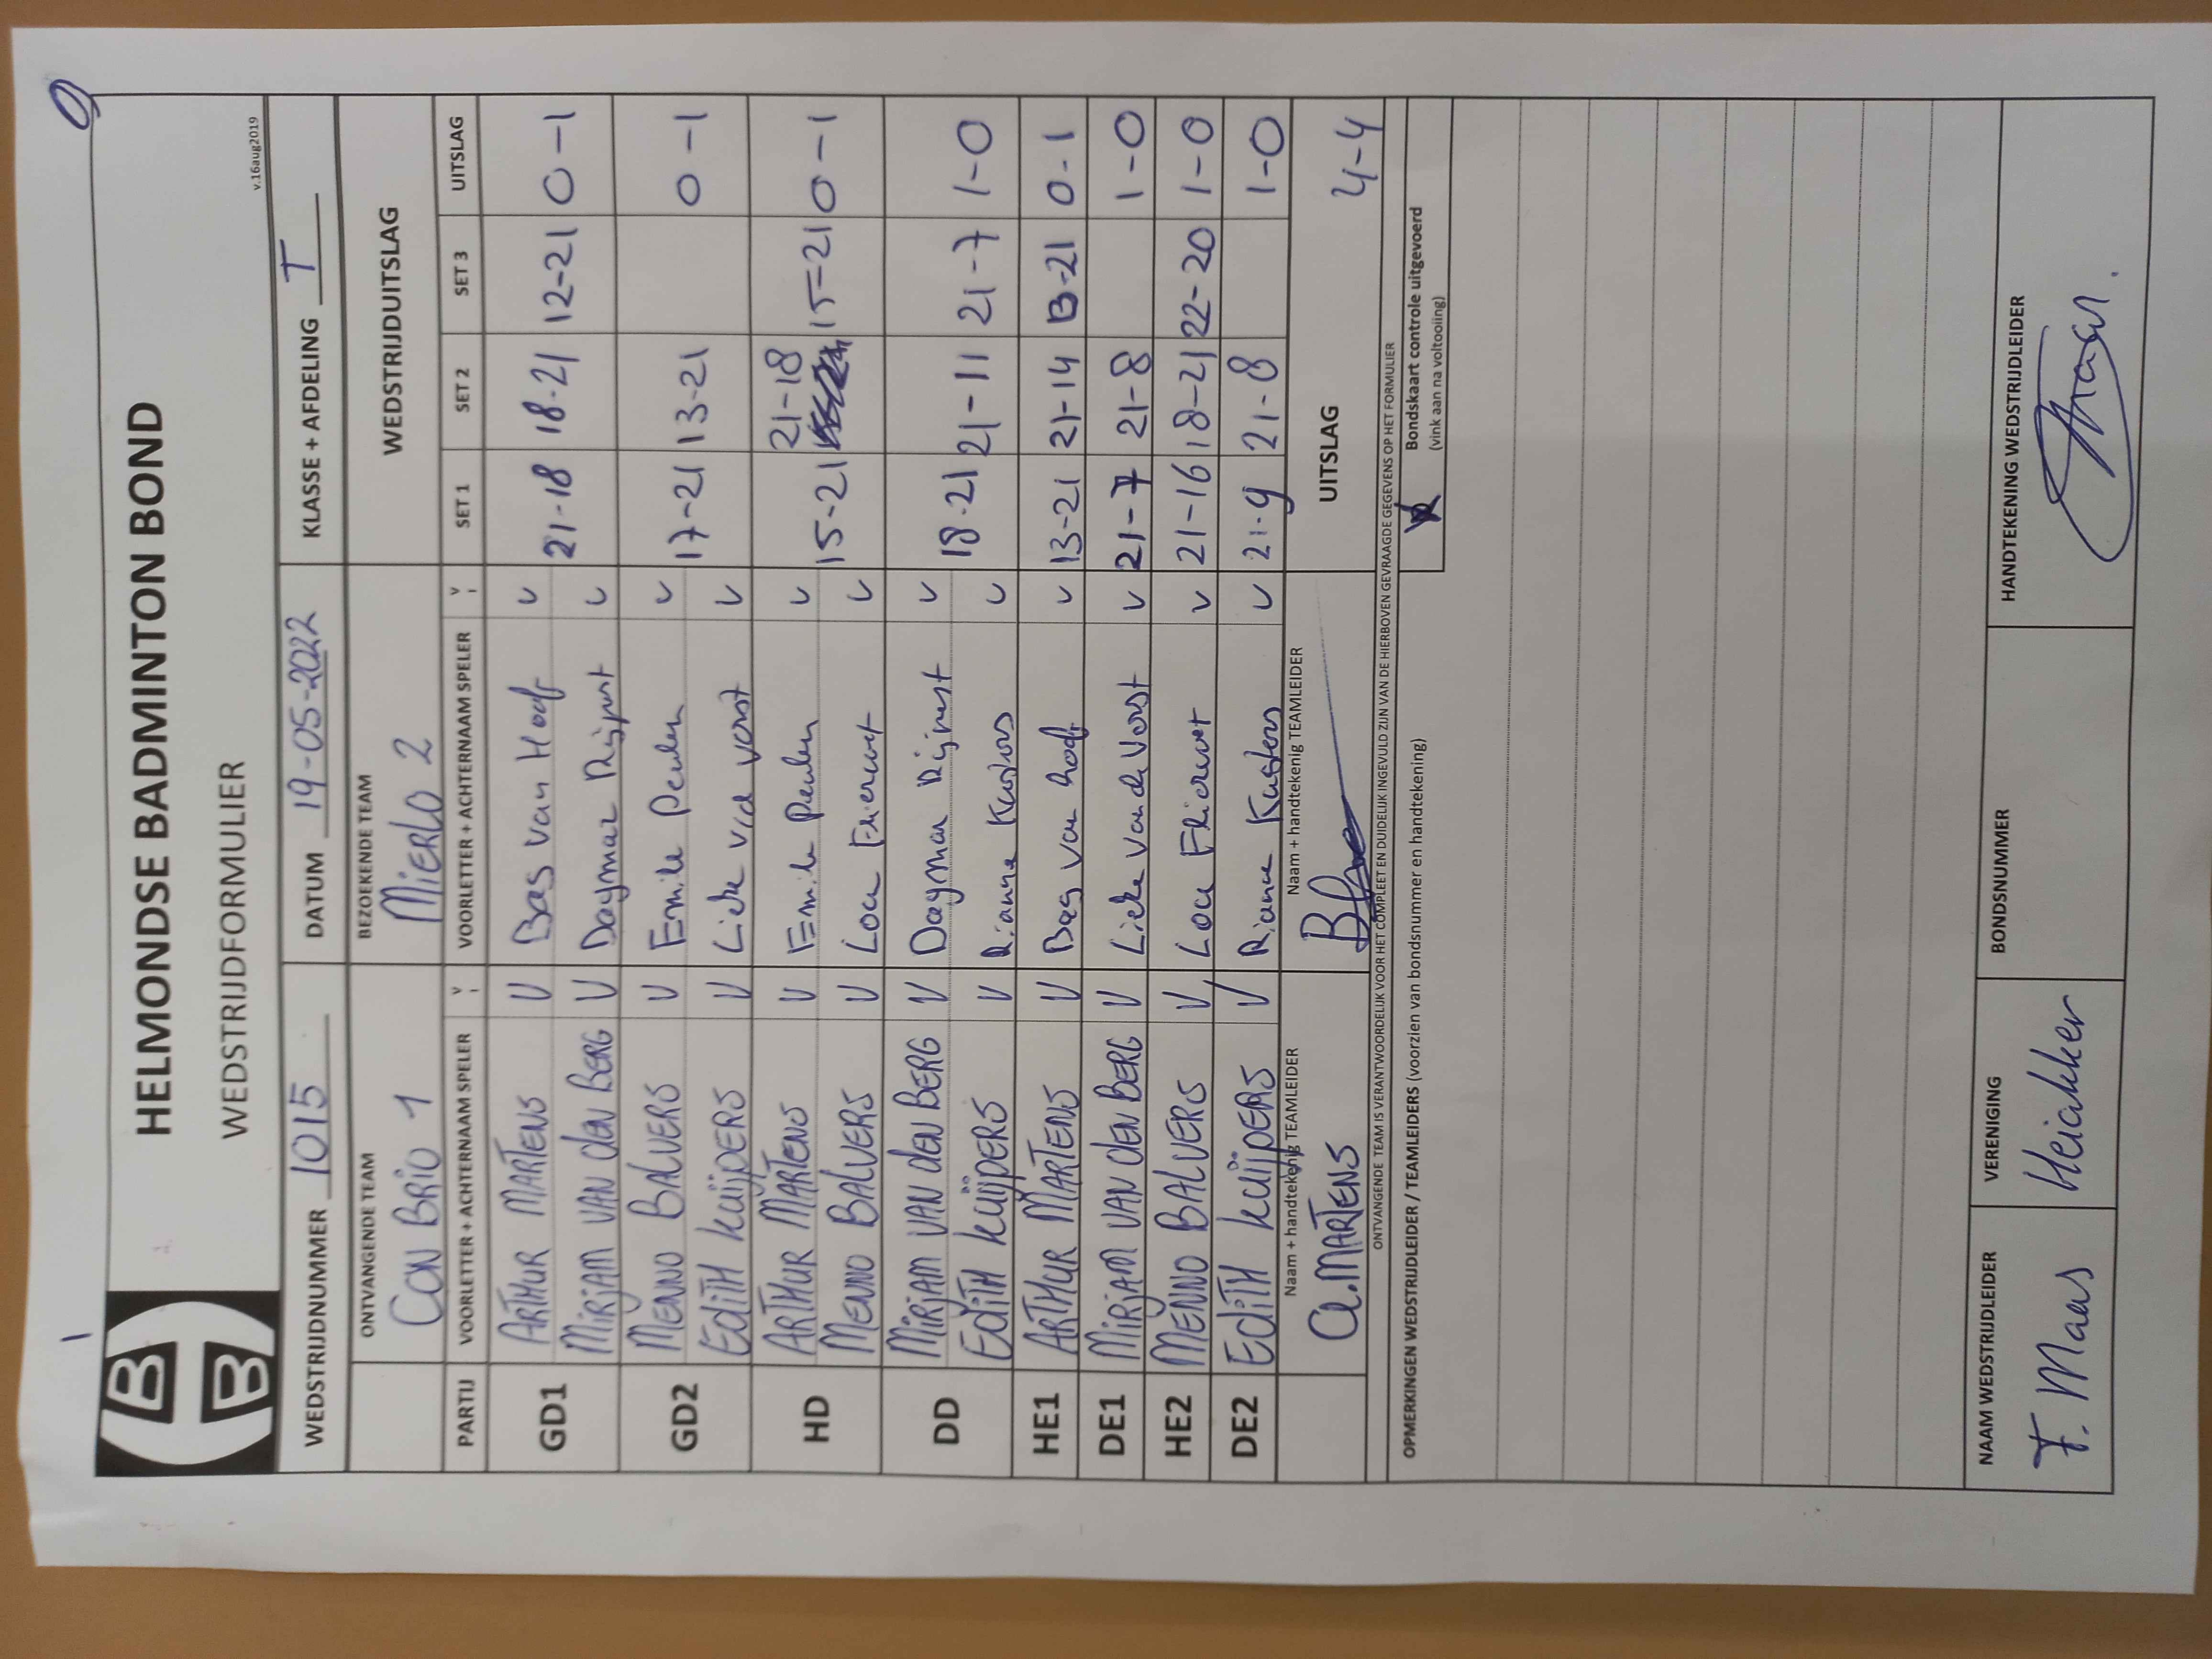 HELMONDSE BADMINTON BOND
WEDSTRIJDFORMULIER
v.16aug2019
WEDSTRIJDNUMMER 1015 DATUM 19-05-2022 KLASSE + AFDELING T
ONTVANGENDE TEAM BEZOEKENDE TEAM WEDSTRIJDUITSLAG
CON BRIO 1 MIERLO 2
PARTIJ VOORLETTER + ACHTERNAAM SPELER V VOORLETTER + ACHTERNAAM SPELER V SET 1 SET 2 SET 3 UITSLAG
GD1 ARTHUR MARTENS V Bas van Hoof v 21-18 18-21 12-21 0-1
MIRJAM VAN DEN BERG V Dagmar v
GD2 MENNO BALVERS V Emile Peulen v 17-21 13-21 0-1
EDITH KUIJPERS V Lieke v/d Vorst v
HD ARTHUR MARTENS V Emile Peulen v 15-21 21-18 15-21 0-1
MENNO BALVERS V Lou v
DD MIRJAM VAN DEN BERG V Dagmar v 18-21 21-11 21-7 1-0
EDITH KUIJPERS V Rianne Kusters v
HE1 ARTHUR MARTENS V Bas van Hoof v 13-21 21-14 13-21 0-1
DE1 MIRJAM VAN DEN BERG V Lieke van de Vorst v 21-7 21-8 1-0
HE2 MENNO BALVERS V Lou v 21-16 18-21 22-20 1-0
DE2 EDITH KUIJPERS V Rianne Kusters v 21-9 21-8 1-0
Naam + handtekenig TEAMLEIDER Naam + handtekenig TEAMLEIDER UITSLAG 4-4
A. MARTENS
ONTVANGENDE TEAM IS VERANTWOORDELIJK VOOR HET COMPLEET EN DUIDELIJK INGEVULD ZIJN VAN DE HIERBOVEN GEVRAAGDE GEGEVENS OP HET FORMULIER
OPMERKINGEN WEDSTRIJDLEIDER / TEAMLEIDERS (voorzien van bondsnummer en handtekening)
Bondskaart controle uitgevoerd
(vink aan na voltooiing)
NAAM WEDSTRIJDLEIDER VERENIGING BONDSNUMMER HANDTEKENING WEDSTRIJDLEIDER
F. Maas Heiakker